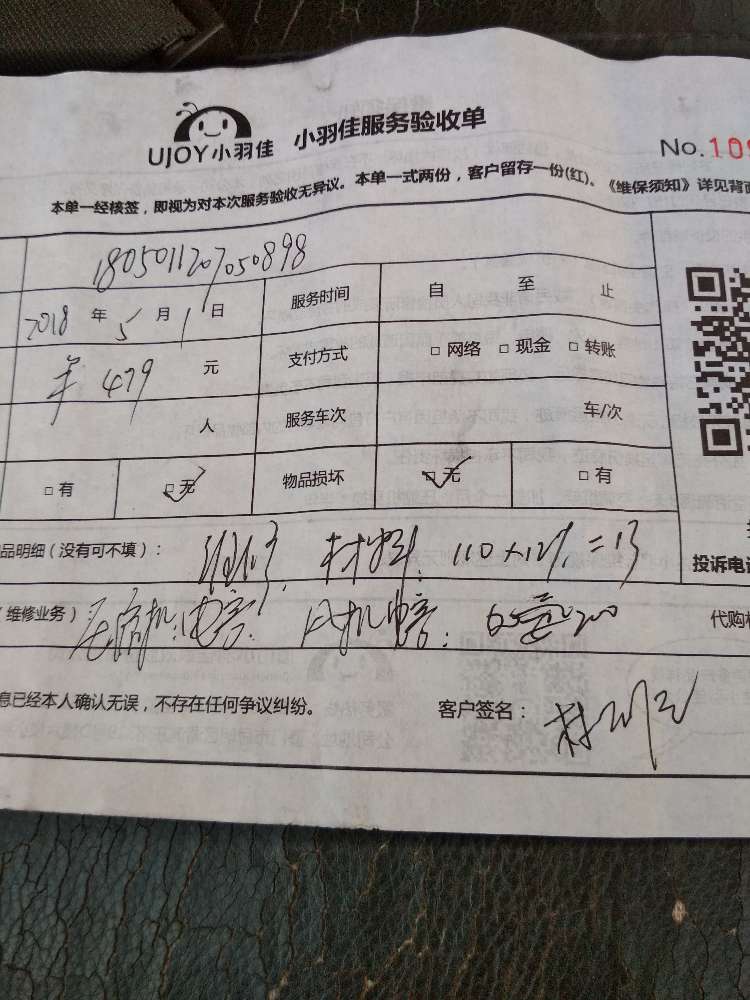 UJOY小羽佳 小羽佳服务验收单
No.109
本单一经核签，即视为对本次服务验收无异议。本单一式两份，客户留存一份(红)。《维保须知》详见背面
1805011207050898
2018 年 5 月 1 日 服务时间 自 至 止
¥ 479 元 支付方式 □ 网络 □ 现金 □ 转账
人 服务车次 车/次
□ 有 □ 无 物品损坏 □ 无 □ 有
品明细（没有可不填）： 维修 材料：110+129=
投诉电话
维修业务） 压缩机：电容 风机电容：
代购
息已经本人确认无误，不存在任何争议纠纷。 客户签名：